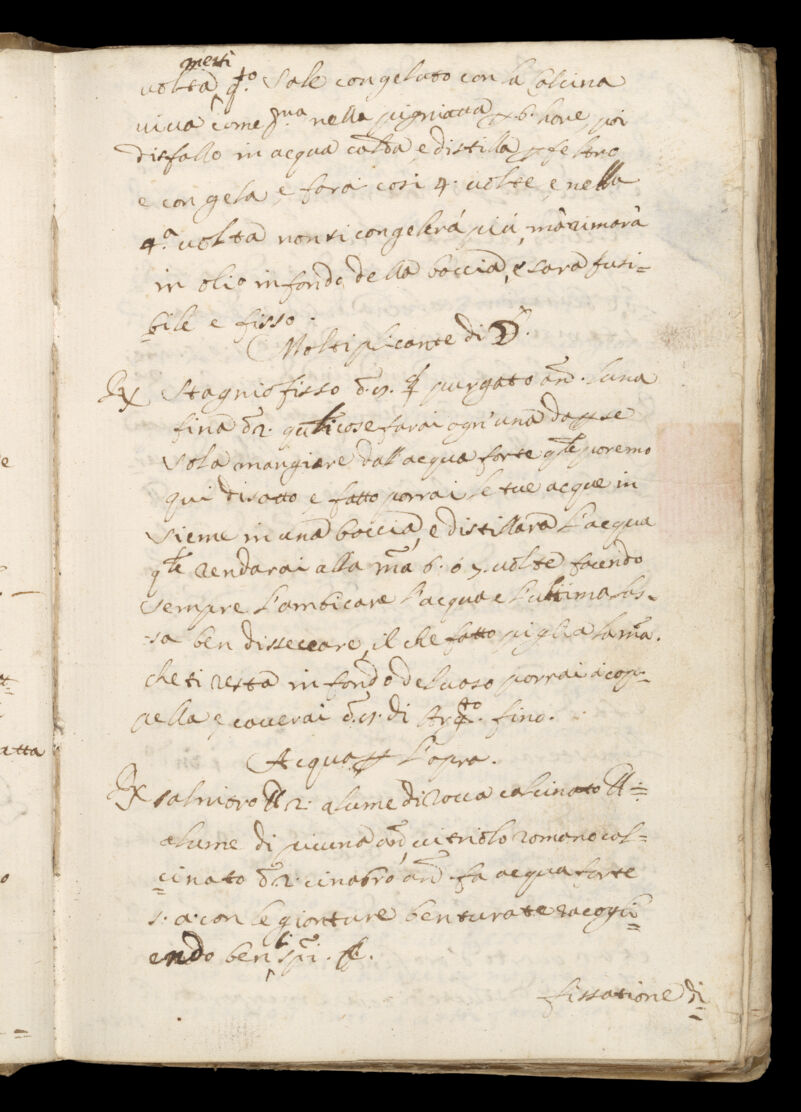 metti
volta q.to sale congelato con la Calcina
viva come p.ma nella pigniatta p 6. hore, poi
disfallo in acqua calda, e distilla p feltro
e congela, e farai cosi 4. volte, e nella
4.a volta non si congelerà più, mà rimarà
in olio in fondo della boccia, e sarà fusi-
bile e fisso.
Moltiplicante di ☽.
Rx Stagnio fisso purgato añ. luna
fina q.li cose farai ogn'una da p se
sola mangiare dall'acqua forte q.le poremo
qui di sotto, e fatto porrai le tue acque in
sieme in una boccia, e distillara l'acqua
q.le rendarai alla m.a 6. ò 7. volte facendo
sempre lambicare l'acqua e l'ultima las-
sa ben disseccare, il che fatto piglia la m.a.
che ti resta in fondo del vaso porrai à cop-
pella e caverai di Arg.to fino.
Acqua p l'opra.
Rx salnitro ℔ 2. alume di rocca calcinato ℔
alume di piuma añ, vitriolo romano cal-
cinato cinabro añ. fa acqua forte
s. a. con le gionture ben turate racogli-
endo ben li spi.
fissatione di